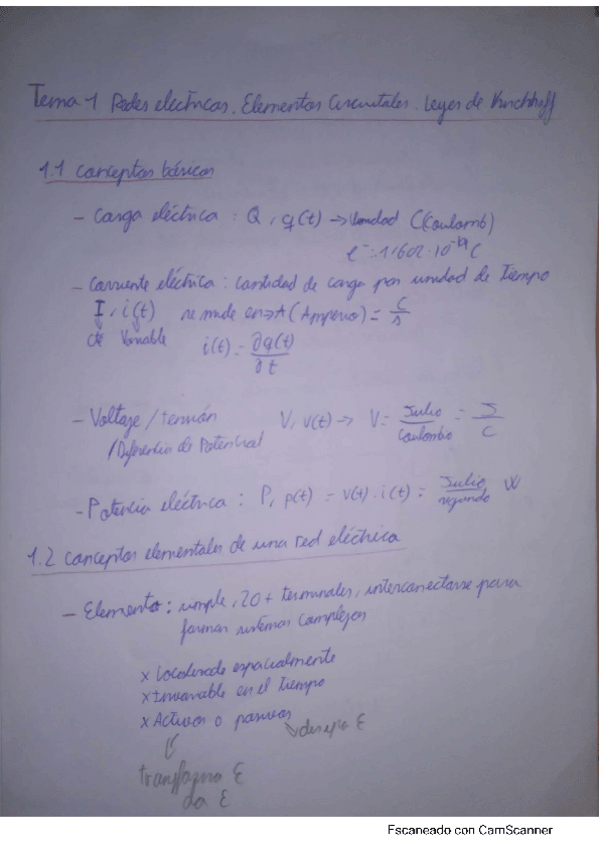 Tema 1 Redes electricas. Elementos Circuitales. Leyes de Kirchhoff
1.1 conceptos básicos
- Carga eléctrica : Q, q(t) → Unidad C(Coulomb)
e⁻: 1'602·10⁻¹⁹ C
- Corriente eléctrica : Cantidad de carga por unidad de Tiempo
I, i(t) se mide en → A (Amperio) = C/s
cte Variable i(t) = ∂q(t)/∂t
- Voltaje / tensión V, v(t) → V = Julio/Coulombio = J/C
/Diferencia de Potencial
- Potencia eléctrica : P, p(t) = v(t) · i(t) = Julio/segundo W
1.2 conceptos elementales de una red eléctrica
- Elemento: simple, 2 o + terminales, interconectarse para
formar sistemas complejos
x Localizado espacialmente
x Invariable en el Tiempo
x Activos o pasivos
↘ disipa E
transforma E
da E
Escaneado con CamScanner